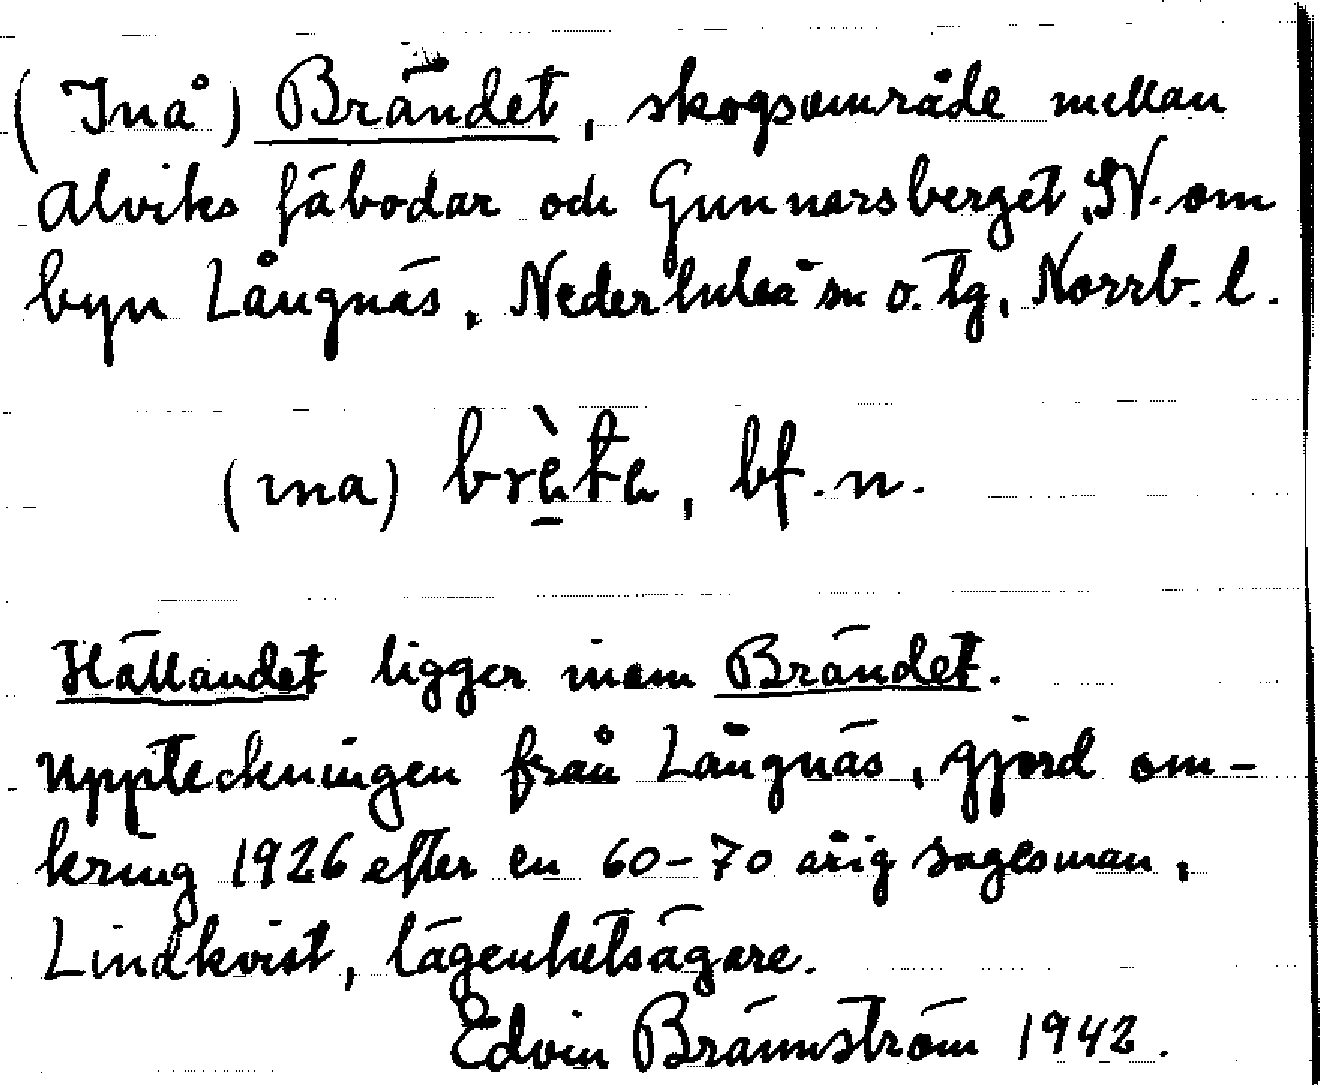 (Inå) Brändet, skogsområde mellan
Alviks fäbodar och Gunnarsberget, SV. om
byn Långnäs, Nederluleå sn o. tg, Norrb. l.
(ina) bf. n.
Hällandet ligger inom Brändet.
Uppteckningen från Långnäs, gjord om-
kring 1926 efter en 60-70 årig sagesman,
Lindkvist, lägenhetsägare.
Edvin Brännström 1942.